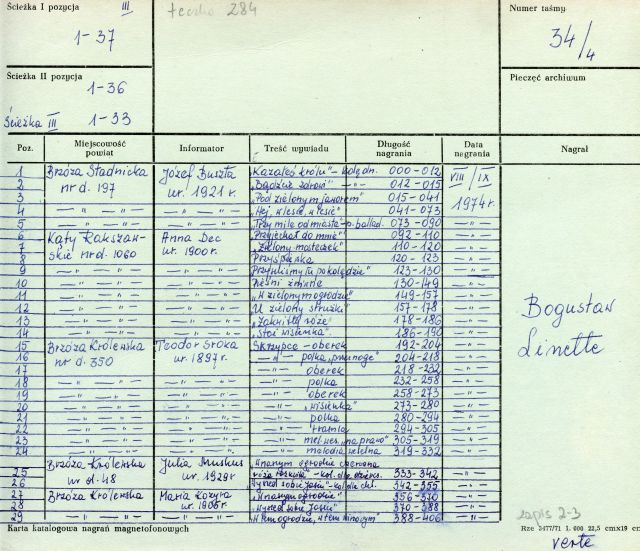 Ścieżka I pozycja III
1-37
teczka 284
Numer taśmy
34/4
Ścieżka II pozycja
1-36
Ścieżka III 1-33
Pieczęć archiwum
Poz. Miejscowość powiat Informator Treść wywiadu Długość nagrania Data nagrania Nagrał
1 Brzóza Stadnicka Józef Buszta „Kazałeś królu" - kolędn. 000-012 VIII/IX
2 nr d. 197 ur. 1921 r. „Bądźże zdrowa" -"- 012-015
3 „Pod zielonym jaworem" 015-041 1974 r.
4 -"- -"- -"- -"- „Hej, w lesie, w lesie" 041-073 -"-
5 -"- -"- -"- -"- „Trzy mile od miasta" - p. ballad. 073-090 -"-
6 Kąty Rakszaw- Anna Dec „Przyjechał do mnie" 092-110 -"-
7 skie nr d. 1060 ur. 1900 r. „Zielony mosteczek" 110-120 -"-
8 -"- -"- -"- -"- Przyśpiewka 120-123 -"-
9 -"- -"- -"- -"- „Przyszliśmy tu po kolędzie" 123-130 -"-
10 -"- -"- -"- -"- Pieśni żniwne 130-149 -"-
11 -"- -"- -"- -"- „W zielonym ogrodzie" 149-157 -"-
12 -"- -"- -"- -"- 157-178 -"-
13 -"- -"- -"- -"- „Zakwitły róże" 178-186 -"-
14 -"- -"- -"- -"- „Stoi wisienka" 186-190 -"-
15 Brzóza Królewska Teodor Sroka Skrzypce - oberek 192-204 -"-
16 nr d. 350 ur. 1897 r. -"- polka „przez nogę" 204-218 -"-
17 oberek 218-232 -"-
18 -"- -"- -"- -"- polka 232-258 -"-
19 -"- -"- -"- -"- oberek 258-273 -"-
20 -"- -"- -"- -"- „wisienka" 273-280 -"-
21 -"- -"- -"- -"- polka 280-294 -"-
22 -"- -"- -"- -"- tramla 294-305 -"-
23 -"- -"- -"- -"- mel. wes. „na prawo" 305-319 -"-
24 -"- -"- -"- -"- melodia weselna 319-332 -"-
Brzóza Królewska Julia „W naszym ogrodzie czerwona
25 nr d. 48 ur. 1929 r róża - kol. dla dziewcz. 333-342 -"-
26 „Wyszed sobie Jasiu" - kol. dla chł. 342-355 -"-
27 Brzóza Królewska Maria Kozyra „W naszym ogrodzie" 356-370 -"-
28 ur. 1906 r. „Wyszed sobie Jasiu" 370-388 -"-
29 -"- -"- -"- -"- „W tem ogrodzie, w tem winnym" 388-406 -"-
Bogusław
Linette
zapis 2-3
Karta katalogowa nagrań magnetofonowych
Rze 3477/71 1. 000 22,5 cmx19 cm
verte